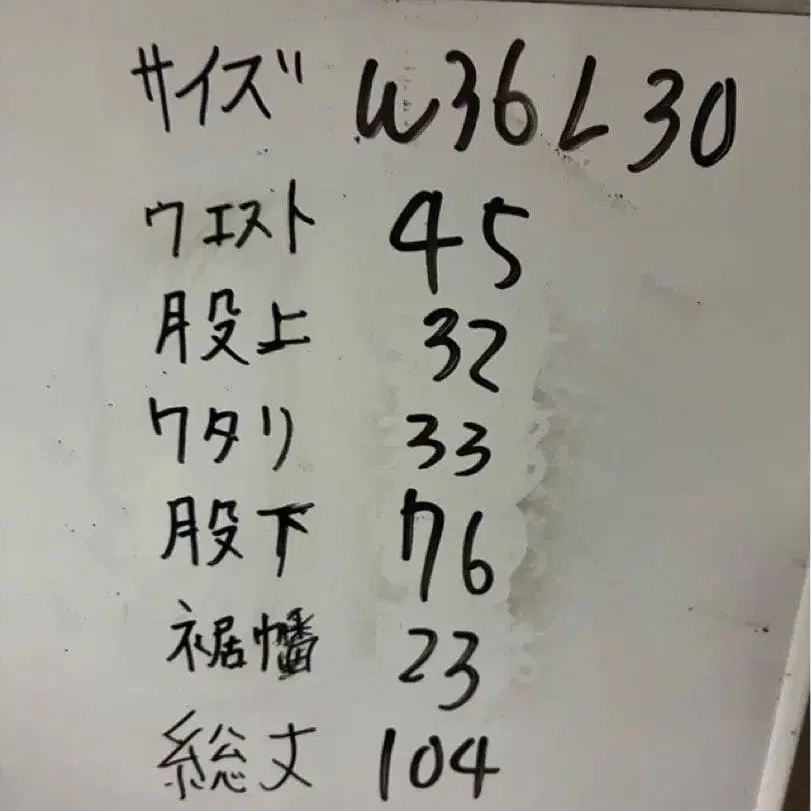 サイズ W36 L30
ウエスト 45
股上 32
ワタリ 33
股下 76
裾幡 23
総丈 104